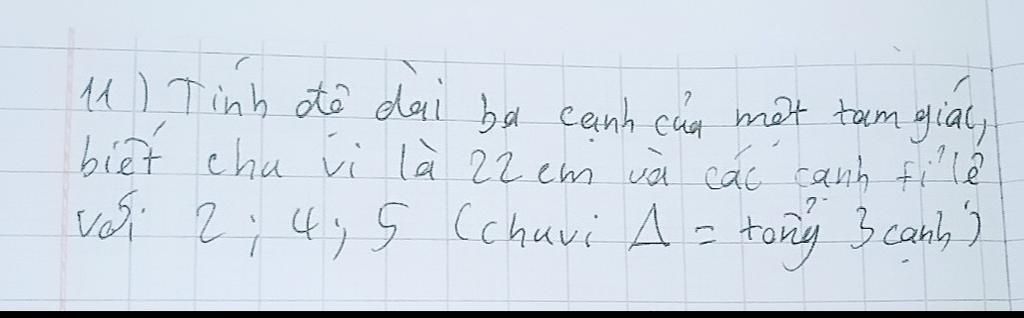 11) Tính độ dài ba cạnh của một tam giác,
biết chu vi là 22 cm và các cạnh tỉ lệ
với 2; 4; 5 (chu vi Δ = tổng 3 cạnh)